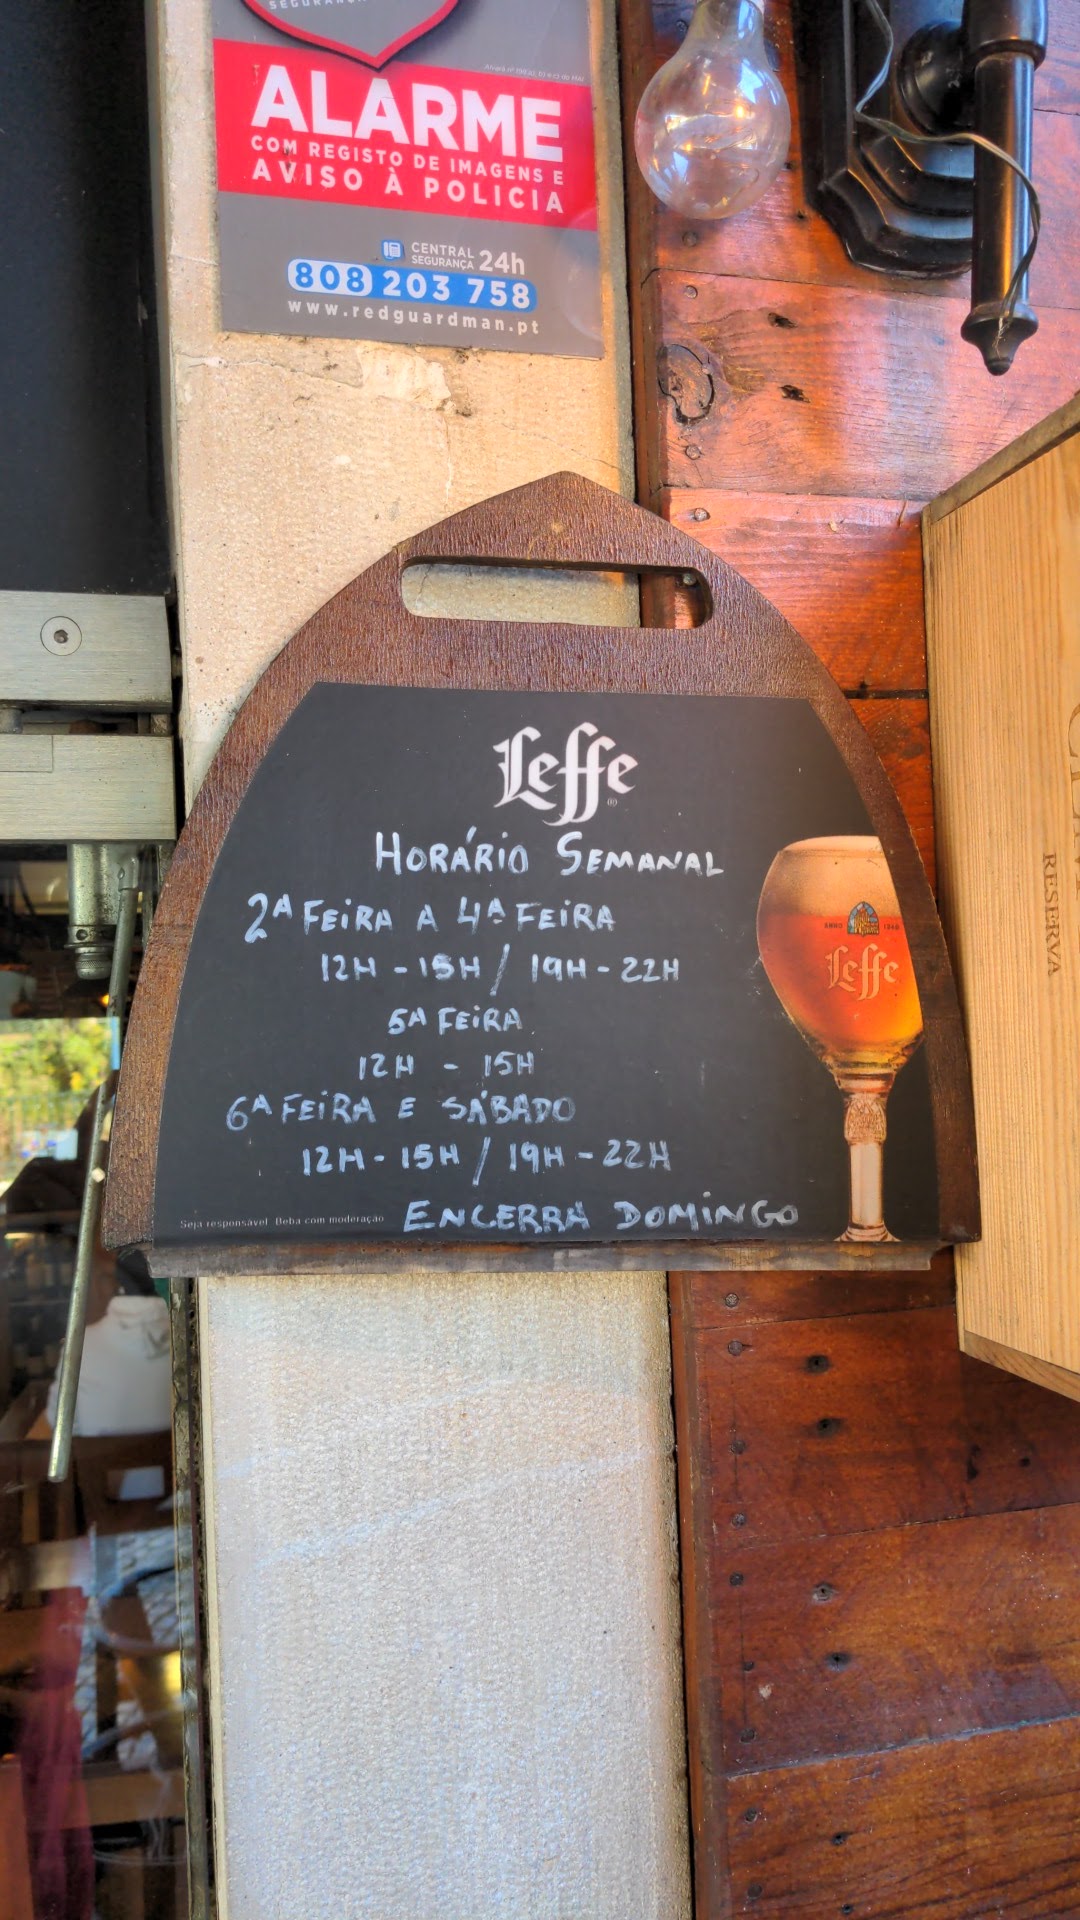 SEGURANÇA
ALARME
COM REGISTO DE IMAGENS E
AVISO À POLICIA
CENTRAL
SEGURANÇA 24h
808 203 758
www.redguardman.pt
Leffe
HORÁRIO SEMANAL
2ª FEIRA A 4ª FEIRA
12H - 15H / 19H - 22H
5ª FEIRA
12H - 15H
6ª FEIRA E SÁBADO
12H - 15H / 19H - 22H
ENCERRA DOMINGO
Seja responsável. Beba com moderação.
ANNO 1240
Leffe
RESERVA